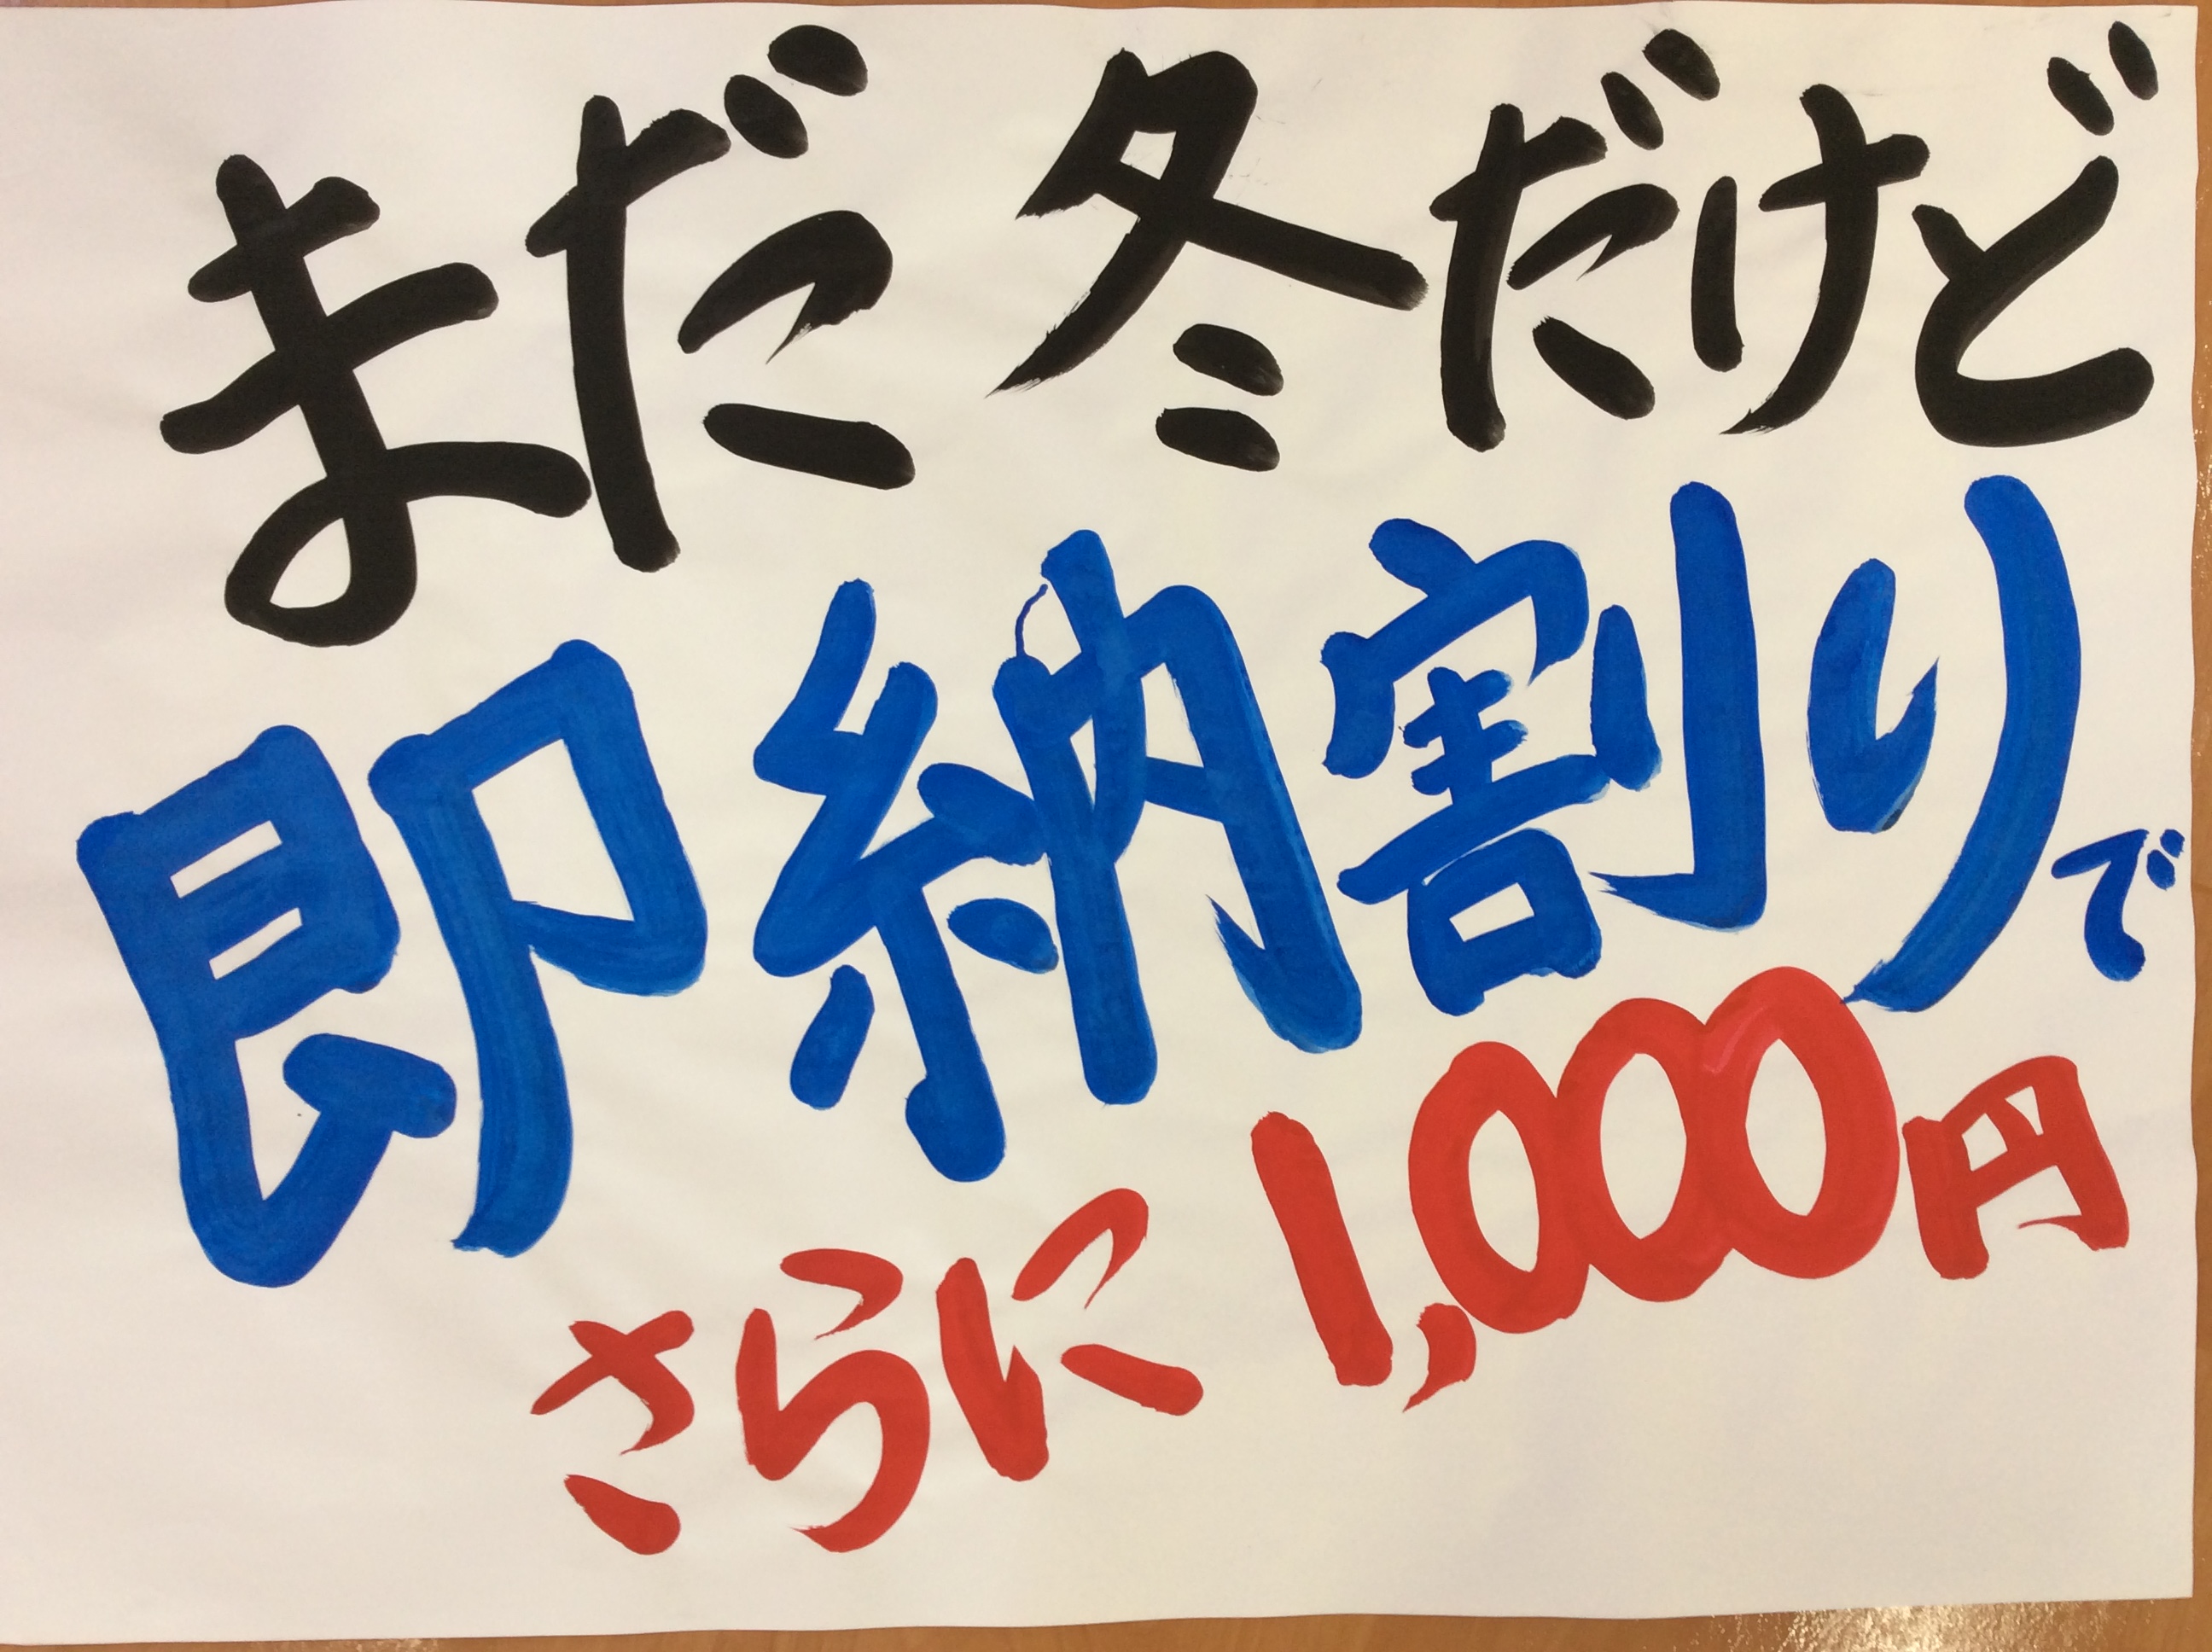 まだ冬だけど
即納割りで
さらに1,000円